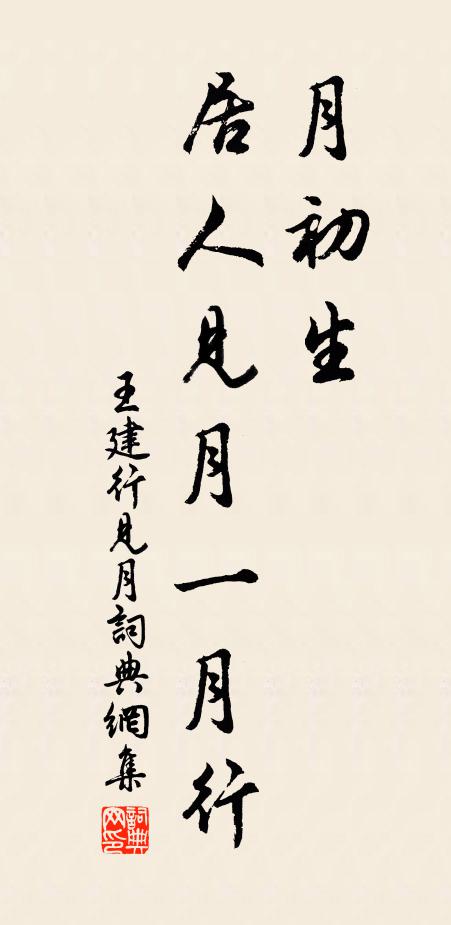 月初生
居人見月一月行
王建行見月詞典網集
詞典網印